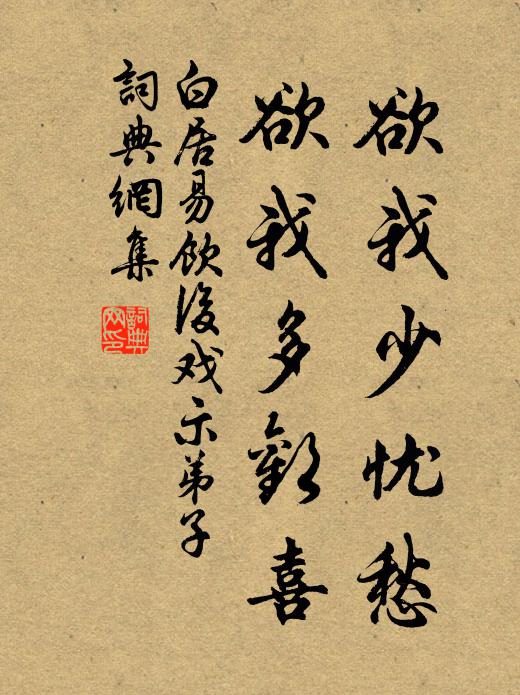 欲我少忧愁
欲我多歡喜
白居易飲後戏示弟子
詞典網集
詞典网印